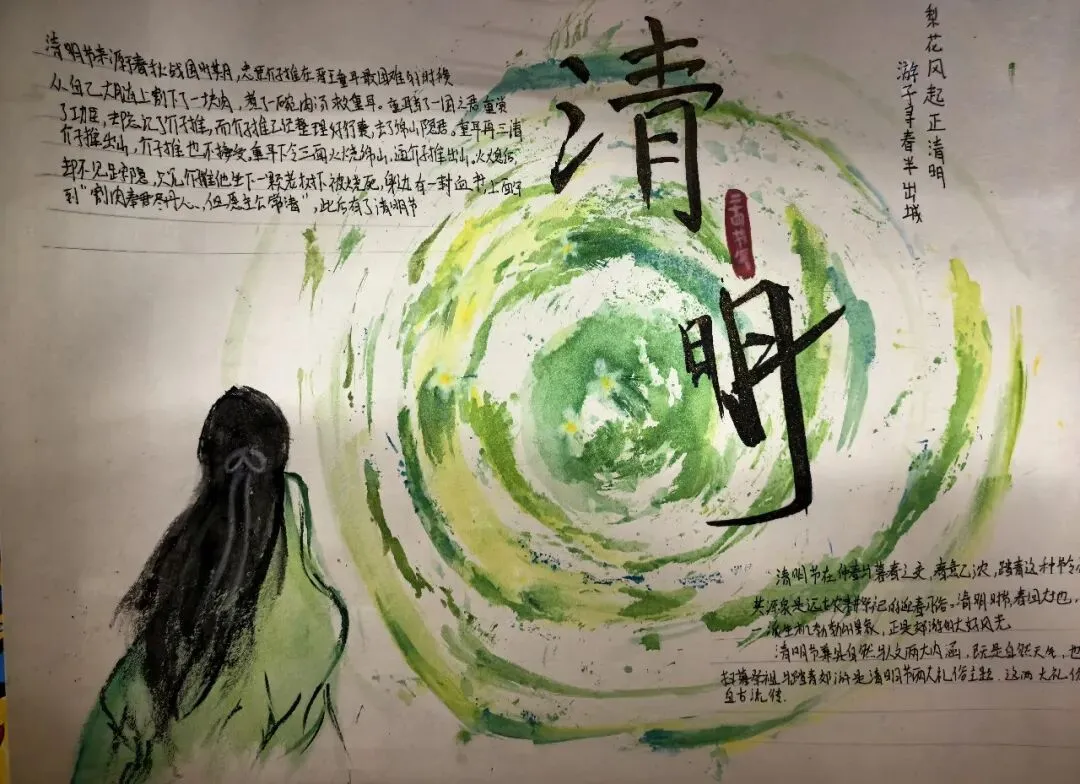 清明节来源于春秋战国时期，忠臣介子推在晋王重耳最困难的时候
从自己大腿上割下了一块肉，煮了一碗肉汤救重耳。重耳当了一国之君重赏
了功臣，去忘了介子推，而介子推已经整理好行囊，去了绵山隐居。重耳再三请
介子推出山，介子推也不接受。重耳下令三面火烧绵山，逼介子推出山。火熄后
却不见其身隐，介子推他坐下一颗老树下被烧死，身边有一封血书，上面写
到“割肉奉君尽丹心，但愿主公常清”，此后有了清明节
清
明
二十四节气
梨花风起正清明
游子寻春半出城
清明节在仲春与暮春之交，春意乙浓，踏青这种节令
其源泉是远古农耕祭祀的迎春习俗。清明时节，春回大地，
一派生机勃勃的景象，正是郊游的大好风光
清明节兼具自然与人文两大内涵，既是自然节气，也
扫墓祭祖与踏青郊游是清明节两大礼俗主题，这两大礼俗
自古流传.